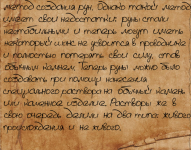 метод создания рун. Однако такой метод
имеет свои недостатки: руны стали
нестабильными и теперь могут иметь
некоторый шанс не удвоится в проводнике
и полностью потерять свои силу, став
обычным камнем. Теперь руны можно было
создавать при помощи нанесения
специального раствора на обычный камень
или каменное изделие. Растворы же в
свою очередь делили на два типа: живого
происхождения и не живого.